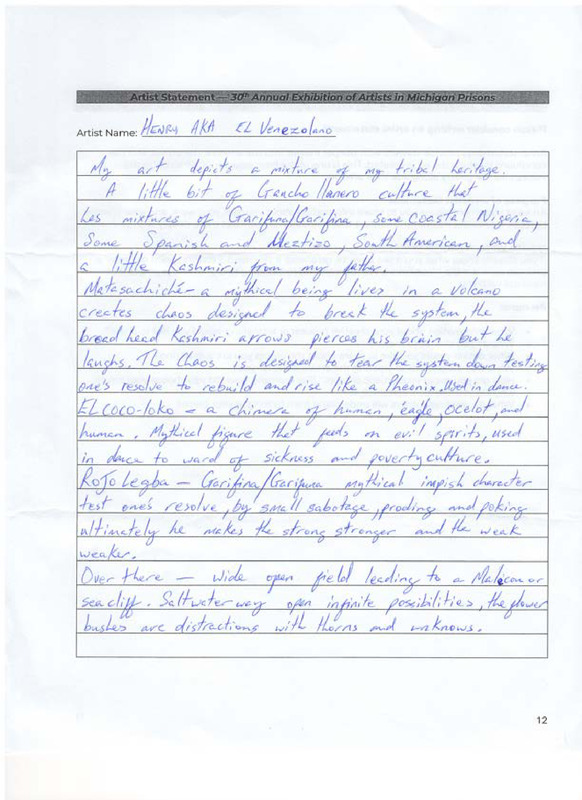 Artist Statement — 30th Annual Exhibition of Artists in Michigan Prisons
Artist Name: HENRY AKA EL Venezolano
My art depicts a mixture of my tribal heritage.
A little bit of Gaucho llanero culture that
has mixtures of Garifuna/Garifina, some coastal Nigeria,
Some Spanish and Meztizo, South American, and
a little Kashmiri from my father.
Matasachiché - a mythical being lives in a volcano
creates chaos designed to break the system, the
broad head Kashmiri arrows pierces his brain but he
laughs. The Chaos is designed to tear the system down testing
one's resolve to rebuild and rise like a Pheonix. Used in dance.
EL COCO-loko - a chimera of human, eagle, ocelot, and
human. Mythical figure that feeds on evil spirits, used
in dance to ward of sickness and poverty culture.
ROJO Legba - Garifina/Garifuna mythical impish character
test one's resolve, by small sabotage, proding and poking
ultimately he makes the strong stronger and the weak
weaker.
Over there - wide open field leading to a Malecon or
sea cliff. Saltwater way open infinite possibilities, the flower
bushes are distractions with thorns and unknows.
12